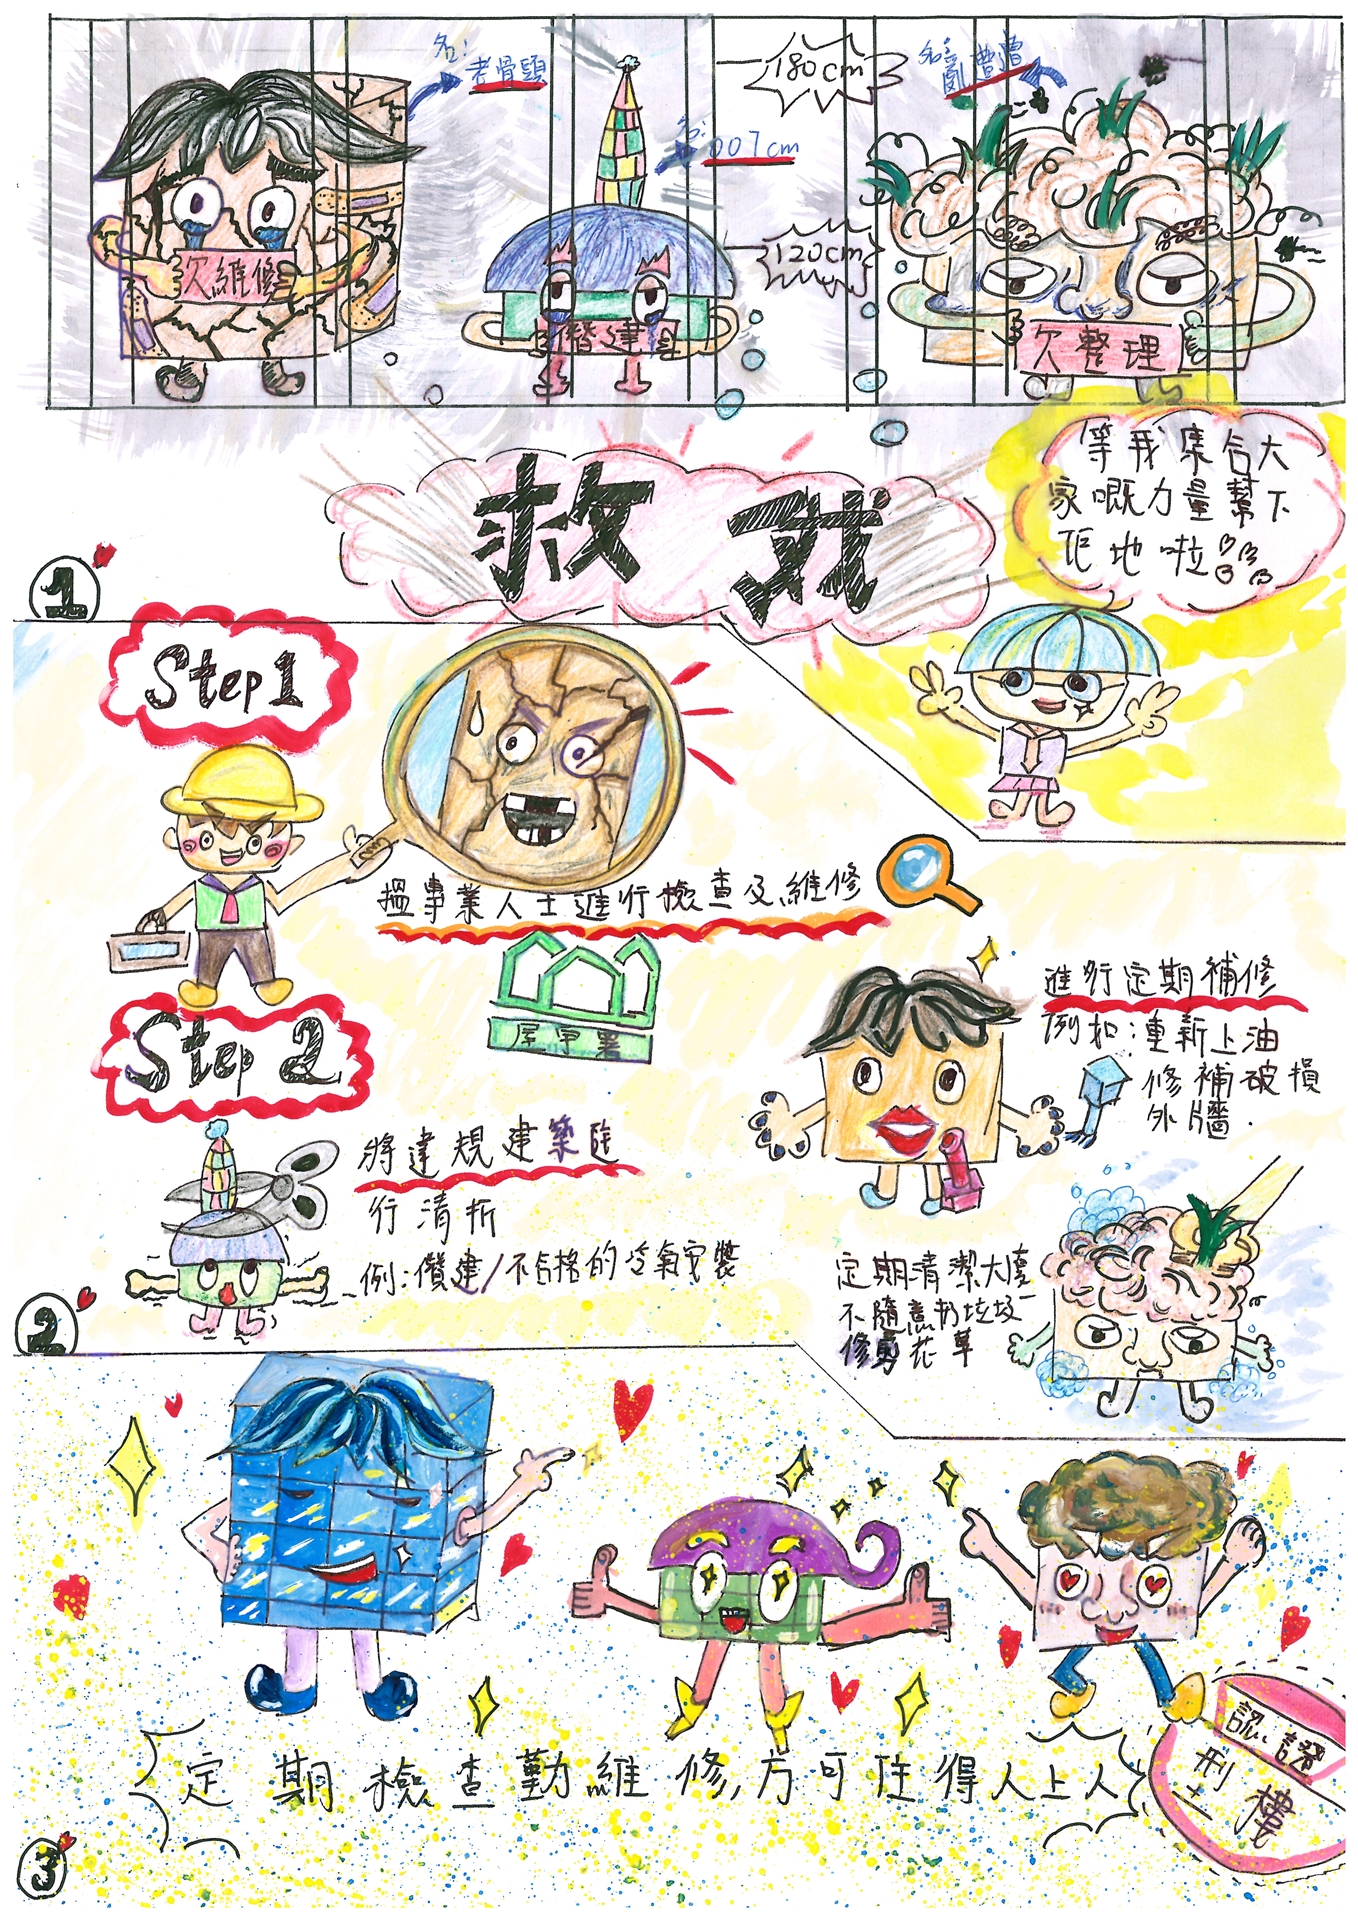 名:
老骨頭
180cm
名:
名:
007cm
120cm
欠維修
僭建
欠整理
救我
等我集合大
家嘅力量幫下
佢地啦
1
Step1
搵專業人士進行檢查及維修
屋宇署
進行定期補修
例如:重新上油
修補破損
外牆.
Step 2
將違規建築進
行清拆
例:僭建/不合格的空氣安裝
定期清潔大廈
不隨意扔垃圾
修剪花草
2
認證
型
樓
定期檢查勤維修,方可住得人上人
3